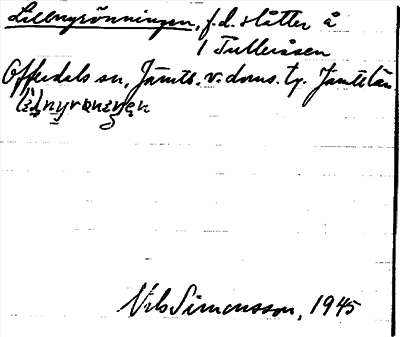 Lillnyrönningen, f.d. slåtter å
1 Tulleråsen
Offerdals sn, Jämtl. v. doms. tg. Jämtl. län
Nils Simonsson, 1945